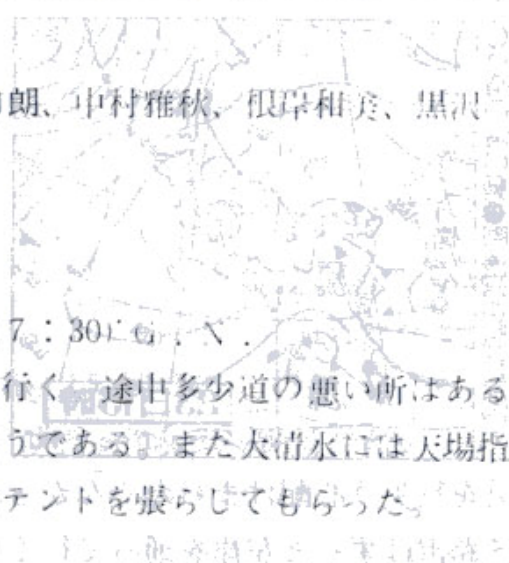 朗、中村雅秋、根岸和 、黒沢
7：30
行く 途中多少道の悪い所はある
うである。また大清水には天場指
テントを張らしてもらった。